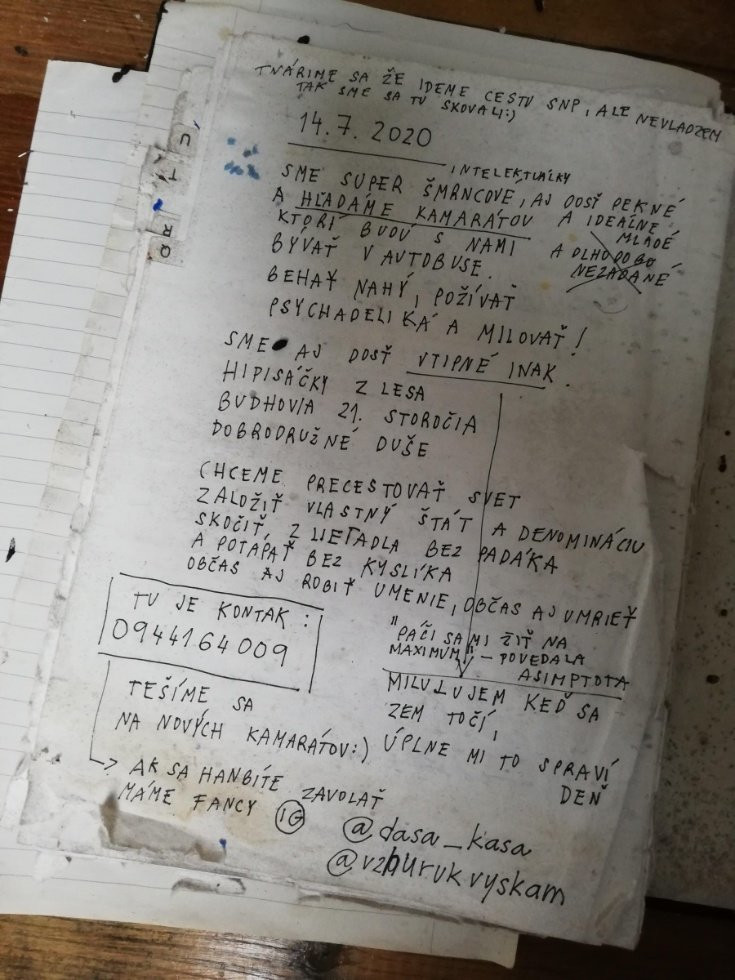 TVÁRIME SA ŽE IDEME CESTU SNP, ALE NEVLADZEM
TAK SME SA TU SKOVALI:)
14.7.2020
INTELEKTUÁLKY
SME SUPER ŠMRNCOVÉ, AJ DOSŤ PEKNÉ
A HĽADÁME KAMARÁTOV A IDEÁLNE MLADÉ
KTORÍ BUDÚ S NAMI A DLHODOBO
BÝVAŤ V AUTOBUSE. NEZADANÉ
BEHAŤ NAHÝ, POŽÍVAŤ
PSYCHADELIKÁ A MILOVAŤ!
SME AJ DOSŤ VTIPNÉ INAK.
HIPISÁČKY Z LESA
BUDHOVIA 21. STOROČIA
DOBRODRUŽNÉ DUŠE
CHCEME PRECESTOVAŤ SVET
ZALOŽIŤ VLASTNÝ ŠTÁT A DENOMINÁCIU
SKOČIŤ Z LIETADLA BEZ PADÁKA
A POTÁPAŤ BEZ KYSLÍKA
OBČAS AJ ROBIŤ UMENIE, OBČAS AJ UMRIEŤ
TU JE KONTAK:
0944164009
"PÁČI SA MI ŽIŤ NA
MAXIMUM" – POVEDALA
ASIMPTOTA
MILUJUJEM KEĎ SA
ZEM TOČÍ,
ÚPLNE MI TO SPRAVÍ
DEŇ
TEŠÍME SA
NA NOVÝCH KAMARÁTOV:)
AK SA HANBÍTE ZAVOLAŤ
MÁME FANCY IG
@dasa_kasa
@vzhurukvyskam
U
T
RQ